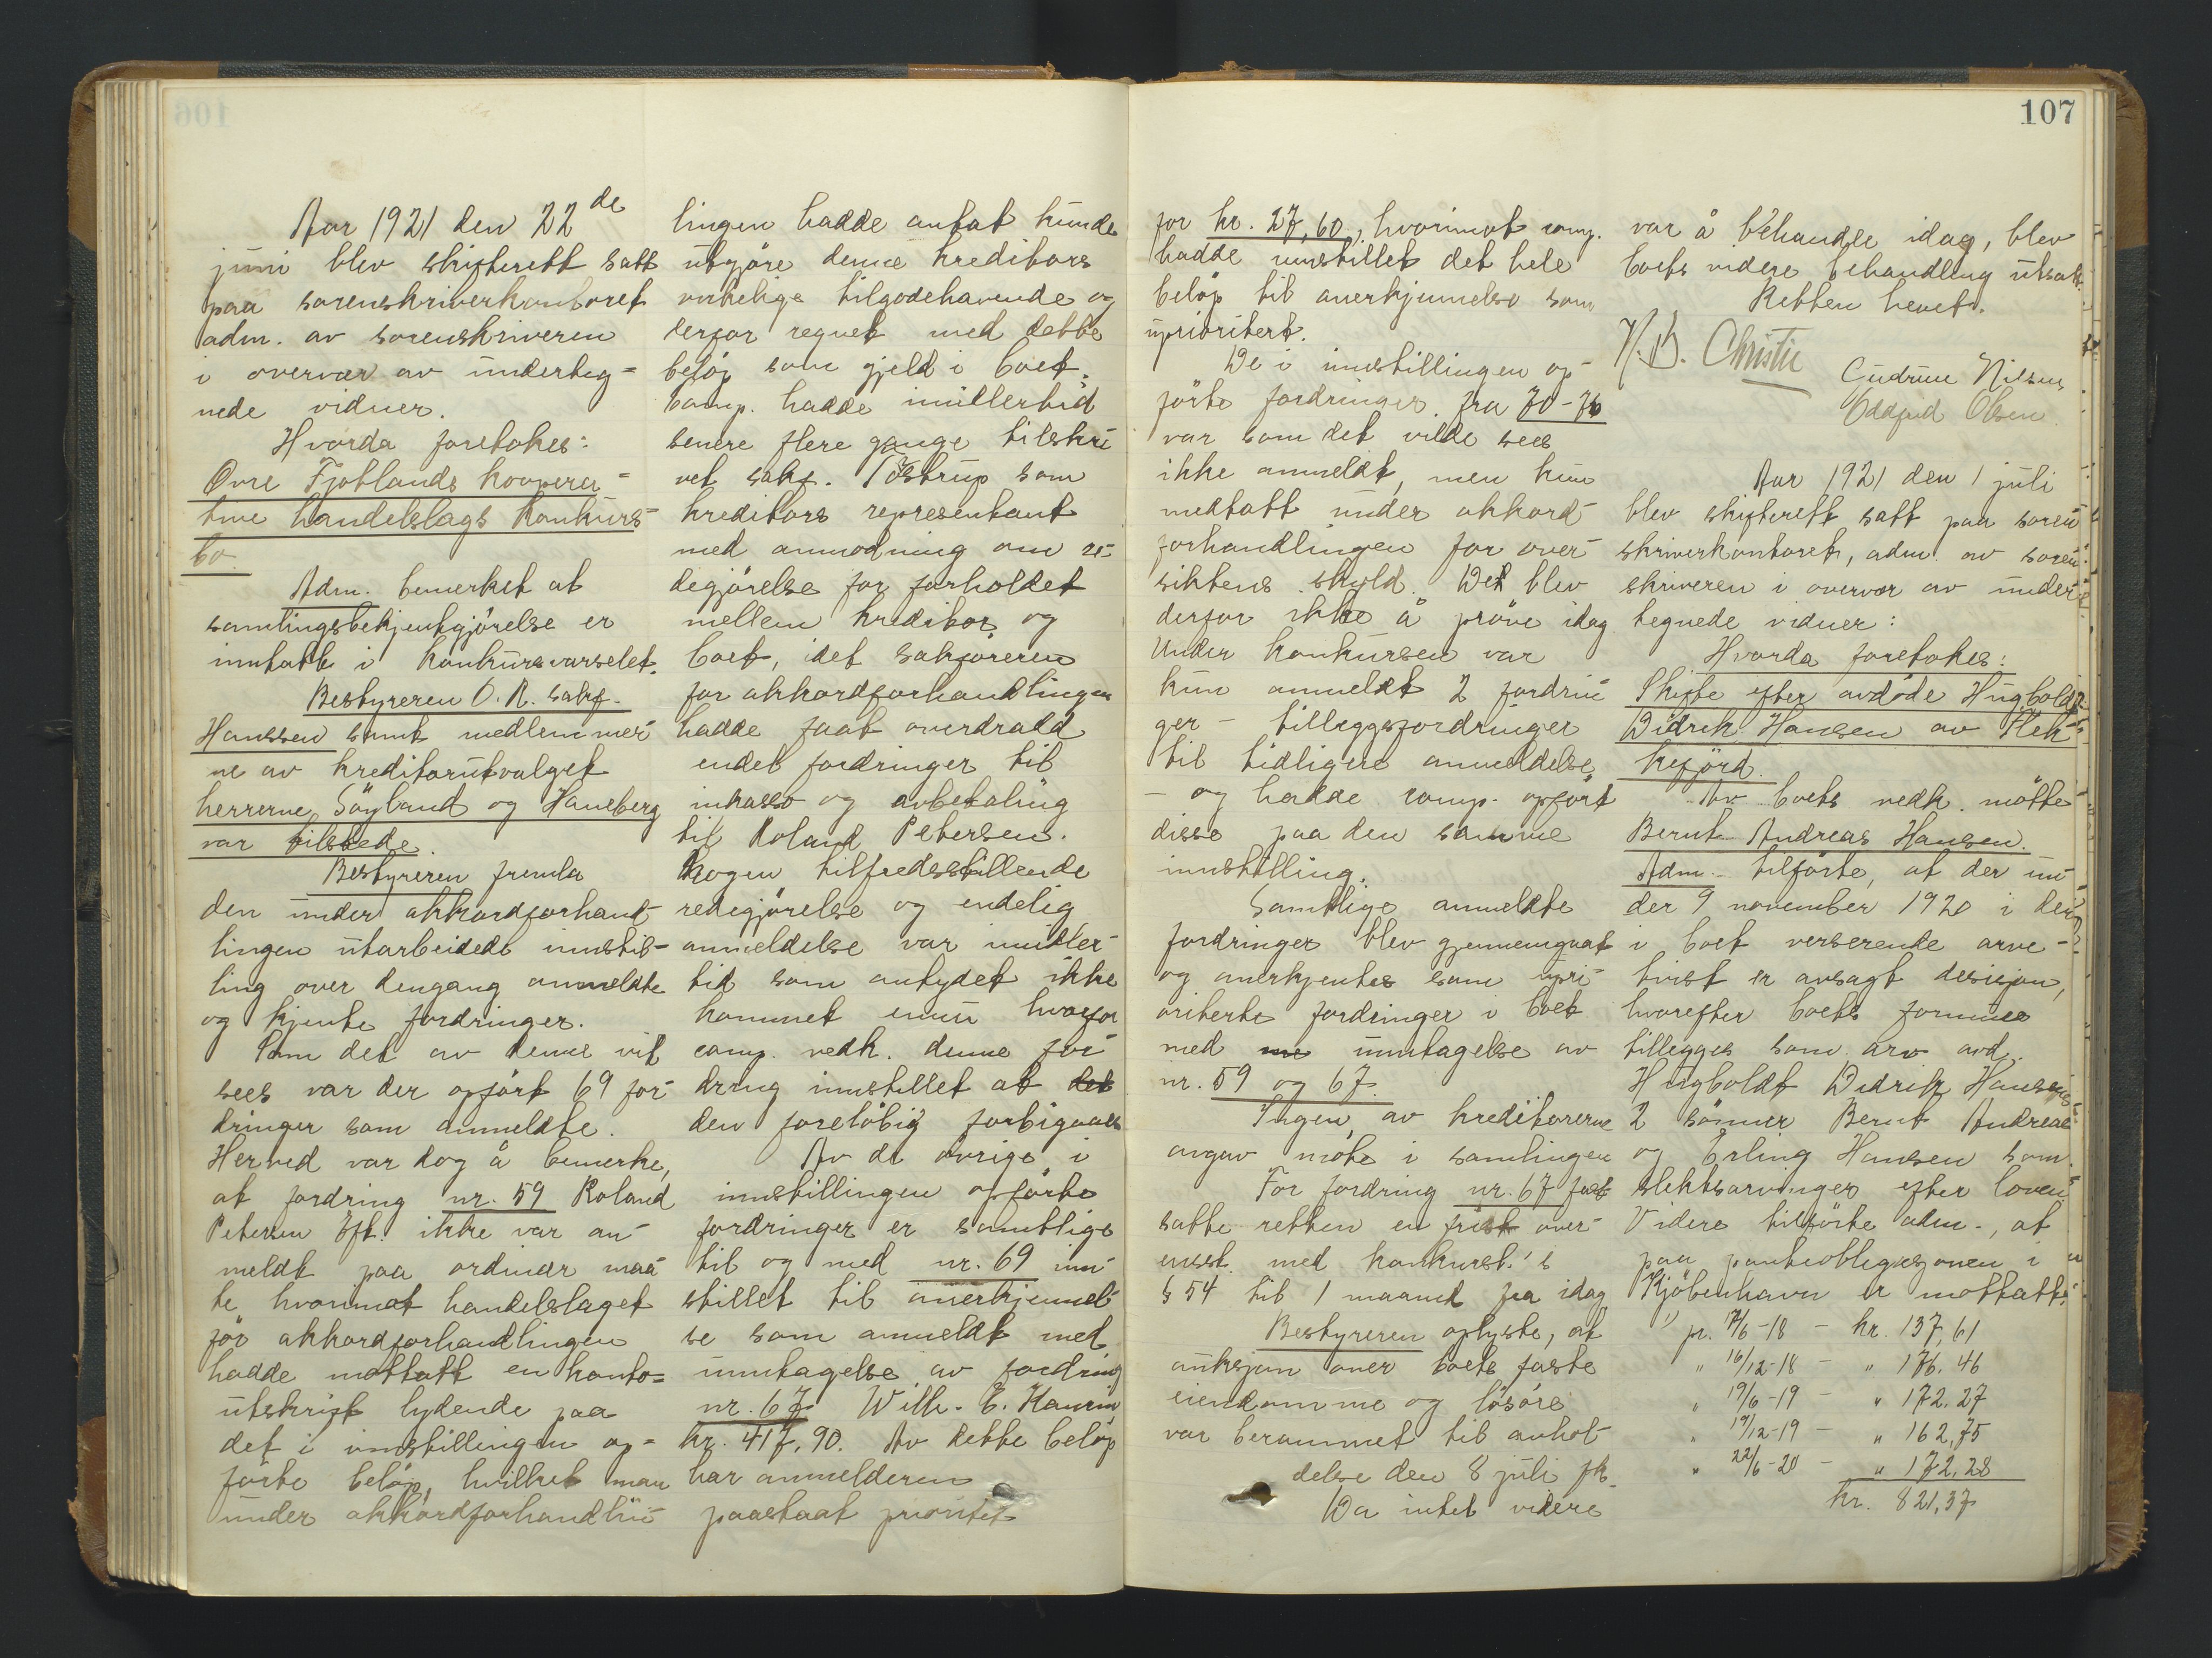 107
Aar 1921 den 22de
juni blev skifterett satt
paa sorenskriverkontoret
adm. av sorenskriveren
i overvær av underteg-
nede vidner.
Hvorda foretokes:
Øvre Fjotlands koopera-
tive handelslags konkurs-
bo.
Adm. bemerket at
samlingsbekjentgjörelse er
inntatt i konkursvarselet.
Bestyreren O. R. sakf.
Hanssen samt medlemmer
ne av kreditorutvalget
herrerne Söyland og Haneberg
var tilstede.
Bestyreren fremla
den under akkordforhand
lingen utarbeidede innstil-
ling over dengang anmeldte
og kjente fordringer.
Som det av denne vil
sees var der opfört 69 for-
dringer som anmeldte.
Herved var dog å bemerke,
at fordring nr. 59 Roland
Petersen Eft. ikke var an-
meldt paa ordinær maa-
te hvorimot handelslaget
för akkordforhandlingen
hadde mottatt en konto-
utskrift lydende paa
det i innstillingen op-
förte belöp, hvilket man
under akkordforhandlin-
lingen hadde antat kunde
utgjöre denne kreditors
virkelige tilgodehavende og
derfor regnet med dette
belöp som gjeld i boet.
Comp. hadde imidlertid
senere flere gange tilskre
vet sakf. Tostrup som
kreditors representant
med anmodning om re-
degjörelse for forholdet
mellem kreditor og
boet, idet sakföreren
for akkordforhandlingen
hadde faat overdradd
endel fordringer til
inkasso og avbetaling
til Roland Petersen.
Nogen tilfredsstillende
redegjörelse og endelig
anmeldelse var imidler-
tid som antydet ikke
kommet ennu hvorfor
comp. vedk. denne for-
dring innstillet at det
den foreløbig forbigaaes
Av de övrige i
innstillingen opförte
fordringer er samtlige
til og med nr. 69 inn-
stillet til anerkjennel-
se som anmeldt med
unntagelse av fordring
nr. 67 Wilh. E. Kaurin
kr. 417,90. Av dette belöp
har anmelderen
paastaat prioritet
for kr. 27,60, hvorimot comp.
hadde innstillet det hele
belöp til anerkjennelse som
uprioritert.
De i innstillingen op-
förte fordringer fra 70-76
var som det vilde sees
ikke anmeldt, men kun
medtatt under akkord-
forhandlingen for over-
siktens skyld. Det blev
derfor ikke å pröve idag
Under konkursen var
kun anmeldt 2 fordrin-
ger - tilleggsfordringer
til tidligere anmeldelse
- og hadde comp. opfört
disse paa den samme
innstilling.
Samtlige anmeldte
fordringer blev gjennemgaat
og anerkjentes som upri-
oriterte fordringer i boet
med unntagelse av
nr. 59 og 67.
Ingen av kreditorerne
avgav möte i samlingen
For fordring nr. 67 fast
satte retten en frist over-
ensst. med konkursl.'s
§ 54 til 1 maaned fra idag
Bestyreren oplyste, at
auksjon over boets faste
eiendomme og lösöre
var berammet til avhol-
delse den 8 juli fk.
Da intet videre
var å behandle idag, blev
boets videre behandling utsatt.
Retten hevet.
Christie
Gudrun Nilsen
Oddfrid Olsen
Aar 1921 den 1 juli
blev skifterett satt paa soren-
skriverkontoret, adm. av soren-
skriveren i overvær av under-
tegnede vidner:
Hvorda foretokes:
Skifte efter avdöde Hugboldt
Didrik Hansen av Flek-
kefjord.
Av boets vedk. mötte
Bernt Andreas Hansen.
Adm. tilförte, at der un-
der 9 november 1920 i den
i boet verserende arve-
tvist er avsagt desisjon,
hvorefter boets formue
tillegges som arv avd.
Hugboldt Didrik Hansens
2 sönner Bernt Andreas
og Erling Hansen som
slektsarvinger efter loven
Videre tilförte adm., at
paa panteobligasjonen i
Kjöbenhavn er mottatt:
pr. 17/6-18 - kr. 137,61
" 16/12-18 - " 176.46
" 19/6-19 - " 172.27
" 19/12-19 - " 162,75
" 22/6-20 - " 172,28
kr. 821,37